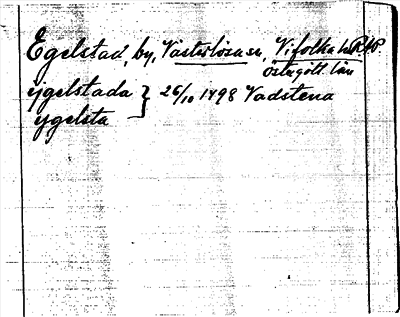 Egelstad, by, Västerlösa sn, Vifolka hd
Östergötl. län
ygelstada } 26/10 1498 Vadstena
ygelsta